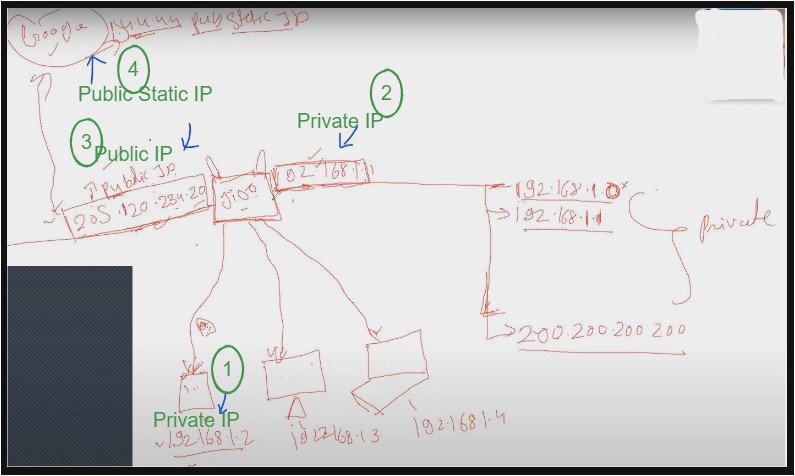 Google
Pub Static IP
4
Public Static IP
2
Private IP
3
Public IP
Public IP
192.168.1.1
205.120.234.20
Jio
192.168.1.0
192.168.1.1
private
200.200.200.200
1
Private IP
192.168.1.2
192.168.1.3
192.168.1.4